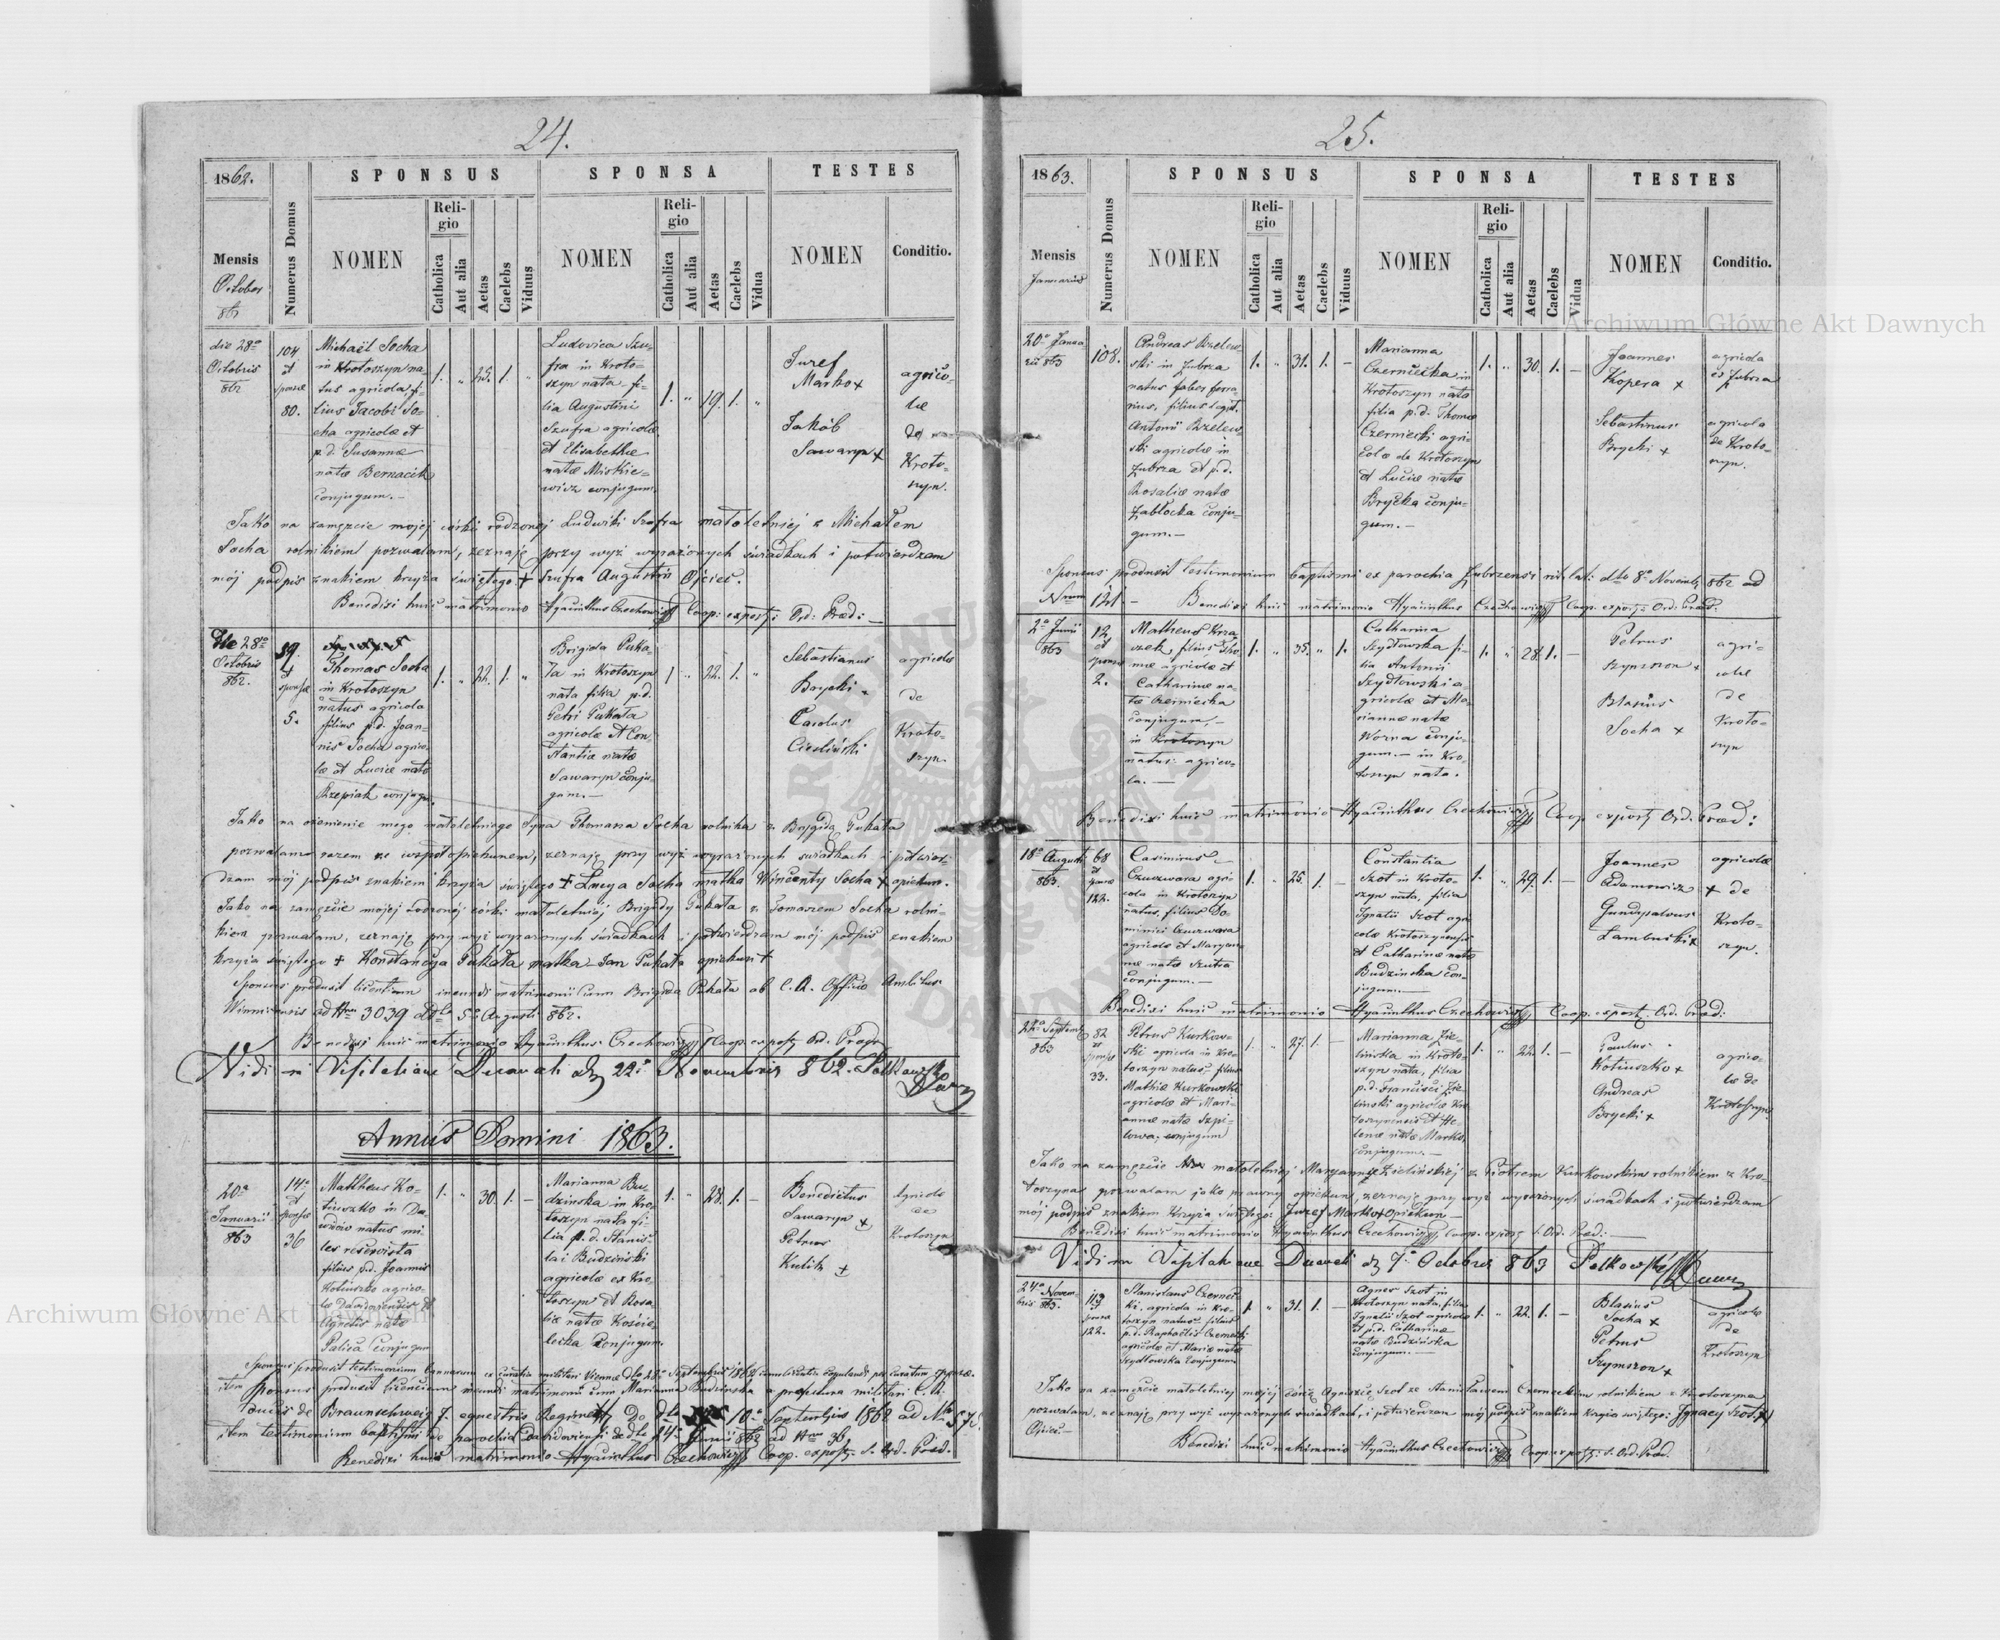 24.
1862.
SPONSUS
SPONSA
TESTES
Mensis
October
861
Numerus Domus
NOMEN
Religio
Catholica
Aut alia
Aetas
Caelebs
Viduus
NOMEN
Religio
Catholica
Aut alia
Aetas
Caelebs
Vidua
NOMEN
Conditio.
die 28a
Octobris
862
104
et
sponsae
80.
Michaël Socha
in Krotoszyn na-
tus agricola, fi-
lius Jacobi So-
cha agricolæ et
p.d. Susannæ
natæ Bernacik
conjugum.-
1. " 25. 1. "
Ludovica Szu-
fra in Kroto-
szyn nata fi-
lia Augustini
Szufra agricolæ
et Elisabethæ
natæ Miskie-
wicz conjugum.
1. " 19. 1. "
Juzef
Marko x
Jakób
Sawaryn x
agrico-
læ
de
Kroto-
szyn.
Jako na zamęzcie mojej córki rodzonej Ludwiki Szufra małoletniej z Michałem
Socha rolnikiem pozwalam, zeznaję przy wyż wyrażonych świadkach i potwierdzam
mój podpis znakiem krzyża świętego + Szufra Augustin Ojciec.
Benedixi huic matrimonio Hyacinthus Czechowicz Coop: expos: Ord: Præd:
die 28a
Octobris
862.
39.
et
sponsæ
5.
Thomas Socha
in Krotoszyn
natus agricola
filius p.d. Joan-
nis Socha agrico-
læ et Luciæ natæ
Rzepiak conjugu.
1. " 22. 1. "
Brigida Puka-
ła in Krotoszyn
nata filia p.d.
Petri Pukała
agricolæ et Con-
stantiæ natæ
Sawaryn conju-
gum.-
1 " 22. 1. "
Sebastianus
Brycki
Carolus
Ciesliński
agricolæ
de
Kroto-
szyn.
Jako na ożenienie mego małoletniego Syna Thomasza Socha rolnika z Brygidą Pukała
pozwalam razem ze współopiekunem, zeznaję przy wyż wyrażonych świadkach i potwier-
dzam mój podpis znakiem krzyża świętego + Łucya Socha matka Wincenty Socha x opiekun.
Jako na zamęzcie mojej rodzonej córki małoletniej Brigidy Pukała z Tomaszem Socha rolni-
kiem pozwalam, zeznaję przy wyż wyrażonych świadkach i potwierdzam mój podpis znakiem
krzyża świętego + Konstancya Pukała matka - Jan Pukała opiekun +
Sponsus produxit licentiam ineundi matrimonii cum Brigida Pukała ab C. R. Officio Ambitus
Winnicensis ad Nrm 3039 ddto 5a Augusti 862.
Benedixi huic matrimonio Hyacinthus Czechowicz Coop. expos Ord. Præd
Vidi in Visitatione Decanali d 22a Novembris 862. Polkowski
Annus Domini 1863.
20a
Januarii
863
14a
et
sponsæ
36
Mattheus Ko-
tiuszko in Da-
widów natus mi-
les reservista
filius p.d. Joannis
Kotiuszko agrico-
læ Dawidoviensis et
Agnetis natæ
Palica Conjugum
1. " 30. 1. -
Marianna Bu-
dzinska in Kro-
toszyn nata fi-
lia p.d. Stanis-
lai Budziński
agricolæ ex Kro-
toszyn et Rosa-
liæ natæ Koście-
lecka Conjugum.
1. " 28. 1. -
Benedictus
Sawaryn x
Petrus
Kulik x
Agricolæ
de
Krotoszyn
Sponsus produxit testimonium bannorum ex curatia militari Viennæ dto 28a Septembris 1862
item Sponsus produxit licentiam ineundi matrimonii cum Marianna Budzinska a præfectura militari C. R.
Ducis de Braunschweig 7. equestris Regiment 10a Septembris 1862 ad Nr 575.
item testimonium baptismi de parochia Dawidoviensi ddto 14a Junii 862 ad Nrm 36.
Benedixi huic matrimonio Hyacinthus Czechowicz Coop. expos: S. Ord. Præd.
25.
1863.
SPONSUS
SPONSA
TESTES
Mensis
Januarius
Numerus Domus
NOMEN
Religio
Catholica
Aut alia
Aetas
Caelebs
Viduus
NOMEN
Religio
Catholica
Aut alia
Aetas
Caelebs
Vidua
NOMEN
Conditio.
20a Janua
rii 863
108.
Andreas Bzelew-
ski in Zubrza
natus faber ferra-
rius, filius legit.
Antonii Bzelew-
ski agricolæ in
Zubrza et p.d.
Rosaliæ natæ
Zabłocka conju-
gum.-
1. " 31. 1. -
Marianna
Czerniecka in
Krotoszyn nata
filia p.d. Thomæ
Czerniecki agri-
colæ de Krotoszyn
et Luciæ natæ
Brycka conju-
gum.-
1. " 30. 1. -
Joannes
Kopera x
Sebastianus
Brycki x
agricola
ex Zubrza
agricola
de Kroto-
szyn.
Sponsus produxit testimonium baptismi ex parochia Zubrzensi rit. lat: ddto 8a Novemb. 862 ad
Nrum 121.- Benedixi huic matrimonio Hyacinthus Czechowicz Coop. expos: Ord: Præd:
2a Junii
863
12
et
sponsæ
2.
Matheus Krza-
czek, filius Tho-
mæ agricolæ et
Catharinæ na-
tæ Czerniecka
conjugum,-
in Krotoszyn
natus: agrico-
la.-
1. " 35. " 1.
Catharina
Szydłowska fi-
lia Antonii
Szydłowski a-
gricolæ et Ma-
riannæ natæ
Worna conju-
gum.- in Kro-
toszyn nata.
1. " 28. 1. -
Petrus
Szymszon x
Blasius
Socha x
agri-
colæ
de
Kroto-
szyn
Benedixi huic matrimonio Hyacinthus Czechowicz Coop expos Ord. Præd:
18a Augusti
863.
68
et
sponsæ
122.
Casimirus
Czuczwara agri-
cola in Krotoszyn
natus, filius Do-
minici Czuczwara
agricolæ et Maryan-
næ natæ Szufra
conjugum.-
1. " 25. 1. -
Constantia
Szot in Kroto-
szyn nata, filia
Ignatii Szot agri-
colæ Krotoszynensis
et Catharinæ natæ
Budzinska con-
jugum.-
1. " 29. 1. -
Joannes
Adamowicz x
Gundysalvus
Zambuski x
agricolæ
de
Kroto-
szyn.
Benedixi huic matrimonio Hyacinthus Czechowicz Coop. expos Ord. Præd:
22a Septemb
863
82
et
sponsæ
33.
Petrus Kurkow-
ski agricola in Kro-
toszyn natus, filius
Mathiæ Kurkowski
agricolæ et Mari-
annæ natæ Szpi-
lowa, conjugum
1. " 27. 1. -
Marianna Zie-
linska in Kroto-
szyn nata, filia
p.d. Francisci Zie-
linski agricolæ Kro-
toszynensis et He-
lenæ natæ Marko,
conjugum.-
1. " 22. 1. -
Paulus
Kotiuszko x
Andreas
Brycki x
agrico-
læ de
Krotoszyn
Jako na zamęzcie małoletniej Maryanny Zielińskiej z Piotrem Kurkowskim rolnikiem z Kro-
toszyna pozwalam jako prawny opiekun, zeznaję przy wyż wyrażonych świadkach i potwierdzam
mój podpis znakiem Krzyża świętego: Juzef Marko x opiekun -
Benedixi huic matrimonio Hyacinthus Czechowicz Coop. expos: S. Ord. Præd:
Vidi in Visitatione Decanali d 7a Octobris 863 Polkowski
24a Novem-
bris 863.
113
et
sponsa
122.
Stanislaus Czernec-
ki agricola in Kro-
toszyn natus filius
p.d. Raphaëlis Czernecki
agricolæ et Mariæ natæ
Szydłowska conjugum.
1. " 31. 1. -
Agnes Szot in
Krotoszyn nata, filia
Ignatii Szot agricolæ
et p.d. Catharinæ
natæ Budzińska
conjugum.-
1. " 22. 1. -
Blasius
Socha x
Petrus
Szymszon x
agricolæ
de
Krotoszyn
Jako na zamęzcie małoletniej mojej córki Agnieszki Szot ze Stanisławem Czerneckim rolnikiem z Krotoszyna
pozwalam, zeznaję przy wyż wyrażonych świadkach, i potwierdzam mój podpis znakiem krzyża świętego: Ignacy Szot x
Ojciec.-
Benedixi huic matrimonio Hyacinthus Czechowicz Coop expos: S. Ord. Præd.
Archiwum Główne Akt Dawnych
Archiwum Główne Akt Dawnych